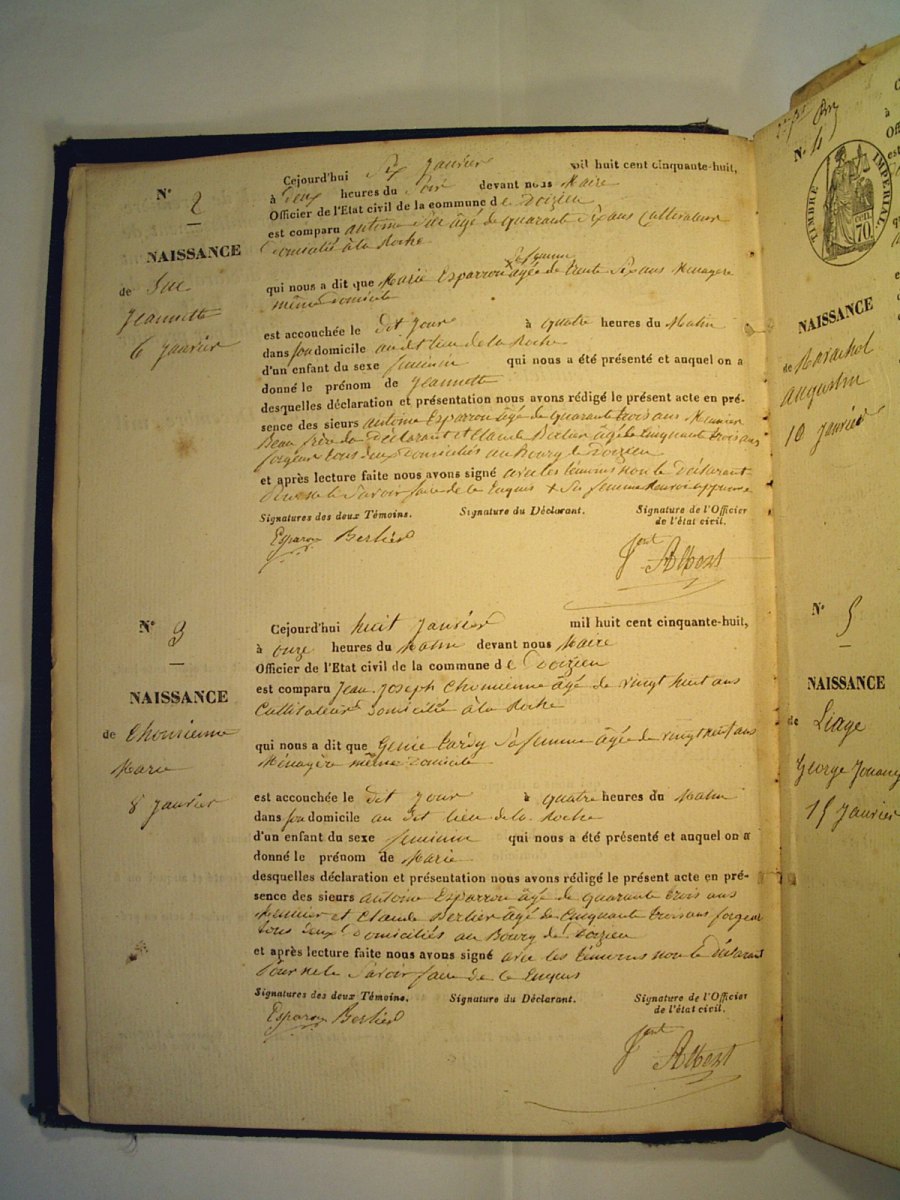 N° 2
NAISSANCE
de Suc
Jeannette
6 Janvier
Cejourd'hui Six Janvier mil huit cent cinquante-huit,
à Deux heures du Soir devant nous Maire
Officier de l'Etat civil de la commune de Doizieu
est comparu antoine Suc âgé de quarante Six ans Cultivateur
Domicilié à la Roche
Sa femme
qui nous a dit que Marie Esparron âgée de trente Six ans Ménagère
même domicile
est accouchée le dit Jour à quatre heures du Matin
dans Son domicile au dit lieu de la Roche
d'un enfant du sexe feminin qui nous a été présenté et auquel on a
donné le prénom de Jeannette
desquelles déclaration et présentation nous avons rédigé le présent acte en pré-
sence des sieurs antoine Esparron âgé de quarante trois ans Meunier
Beau frère du Déclarant et Claude Berlier âgé de Cinquante trois ans
forgeur tous deux domiciliés au Bourg de Doizieu
et après lecture faite nous avons signé avec les témoins non le Déclarant
Pour ne le Savoir faire de ce Enquis + Sa femme Renvoi approuvé
Signatures des deux Témoins. Signature du Déclarant. Signature de l'Officier
de l'état civil.
Esparon Berlier
Albert
N° 3
NAISSANCE
de Chorienne
Marie
8 Janvier
Cejourd'hui huit Janvier mil huit cent cinquante-huit,
à onze heures du Matin devant nous Maire
Officier de l'Etat civil de la commune de Doizieu
est comparu Jean Joseph Chorienne âgé de vingt huit ans
Cultivateur domicilié à la Roche
qui nous a dit que Genie tardy Sa femme âgée de vingt huit ans
Ménagère même domicile
est accouchée le dit Jour à quatre heures du Matin
dans Son domicile au dit lieu de la Roche
d'un enfant du sexe feminin qui nous a été présenté et auquel on a
donné le prénom de Marie
desquelles déclaration et présentation nous avons rédigé le présent acte en pré-
sence des sieurs antoine Esparron âgé de quarante trois ans
Meunier et Claude Berlier âgé de Cinquante trois ans forgeur
tous deux domiciliés au Bourg de Doizieu
et après lecture faite nous avons signé avec les témoins non le Déclarant
Pour ne le Savoir faire de ce Enquis
Signatures des deux Témoins. Signature du Déclarant. Signature de l'Officier
de l'état civil.
Esparon Berlier
Albert
N° 4
TIMBRE IMPERIAL
70
NAISSANCE
de Marechal
Augustin
10 Janvier
N° 5
NAISSANCE
de Liage
George
15 Janvier